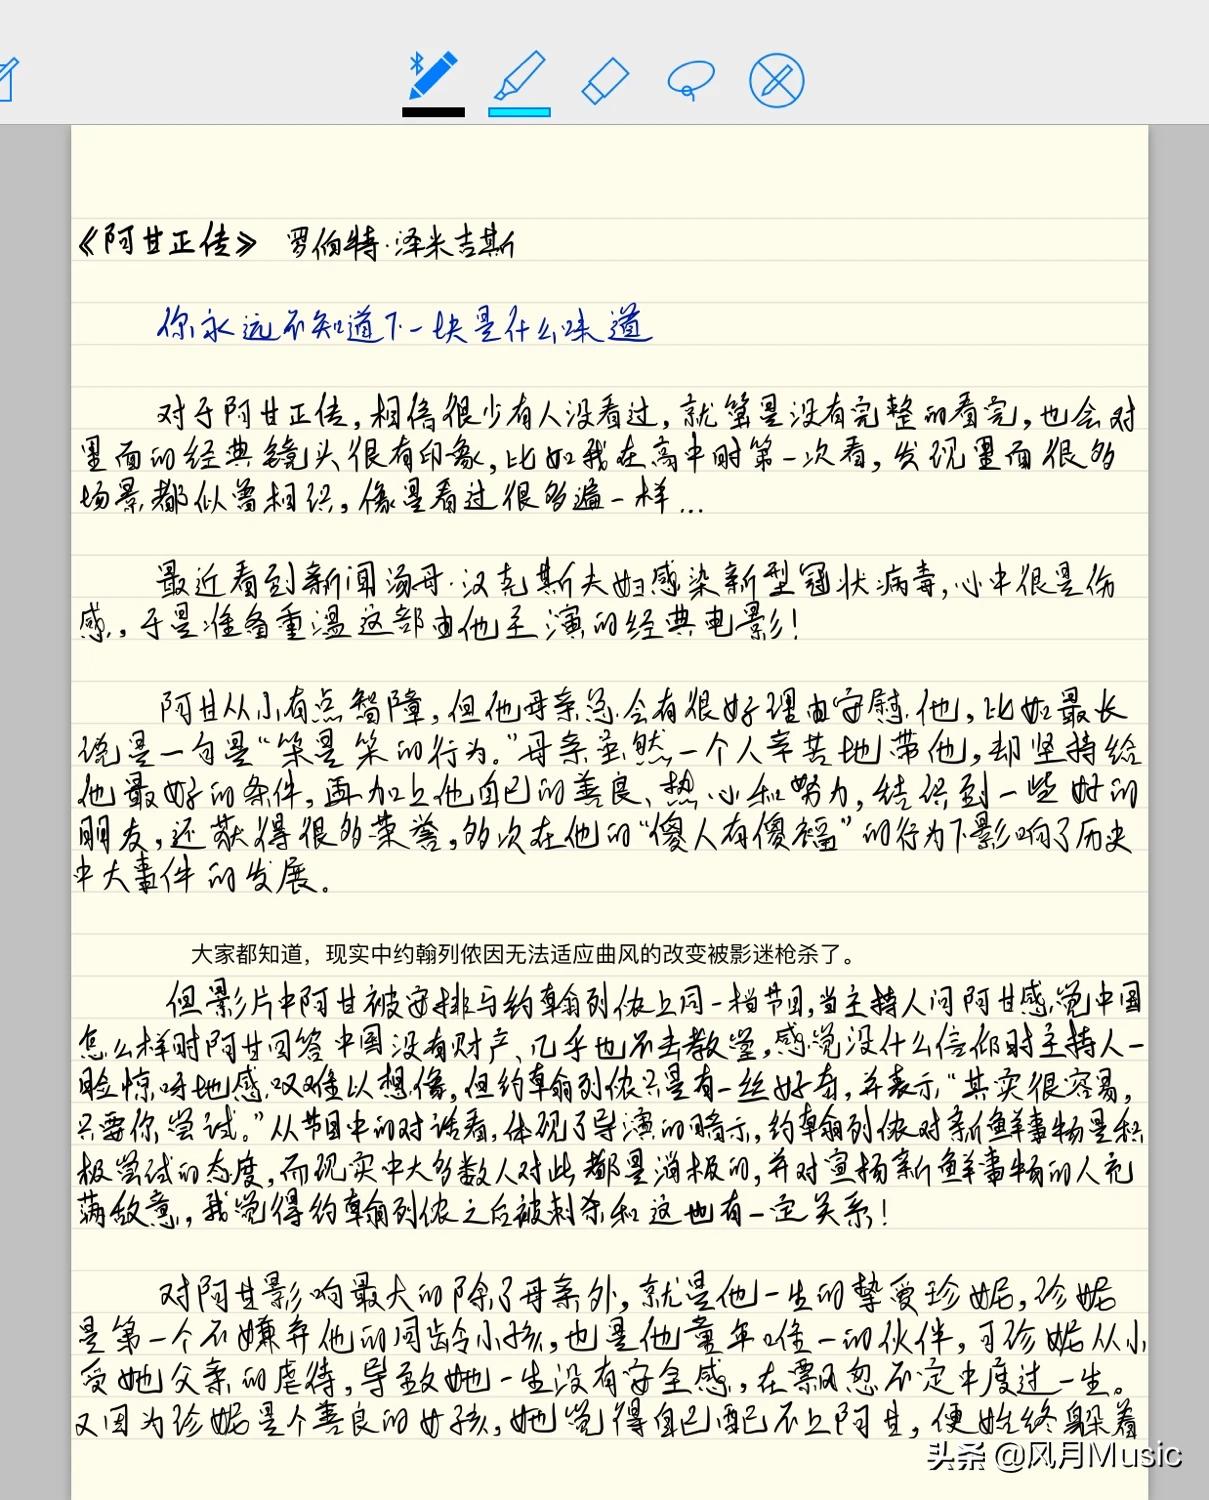 《阿甘正传》 罗伯特·泽米吉斯
你永远不知道下一块是什么味道
对于阿甘正传，相信很少有人没看过，就算是没有完整的看完，也会对
里面的经典镜头很有印象，比如我在高中时第一次看，发现里面很多
场景都似曾相识，像是看过很多遍一样...
最近看到新闻汤母·汉克斯夫妇感染新型冠状病毒，心中很是伤
感，于是准备重温这部由他主演的经典电影！
阿甘从小有点智障，但他母亲总会有很好理由安慰他，比如最长
说是一句是“笨是笨的行为。”母亲虽然一个人辛苦地带他，却坚持给
他最好的条件，再加上他自己的善良、热心和努力，结识到一些好的
朋友，还获得很多荣誉，多次在他的“傻人有傻福”的行为下影响了历史
中大事件的发展。
大家都知道，现实中约翰列侬因无法适应曲风的改变被影迷枪杀了。
但影片中阿甘被安排与约翰列侬上同一档节目，当主持人问阿甘感觉中国
怎么样时阿甘回答中国没有财产、几乎也不去教堂，感觉没什么信仰时主持人一
脸惊呀地感叹难以想像，但约翰列侬只是有一丝好奇，并表示“其实很容易，
只要你尝试。”从节目中的对话看，体现了导演的暗示，约翰列侬对新鲜事物是积
极尝试的态度，而现实中大多数人对此都是消极的，并对宣扬新鲜事物的人充
满敌意，我觉得约翰列侬之后被刺杀和这也有一定关系！
对阿甘影响最大的除了母亲外，就是他一生的挚爱珍妮，珍妮
是第一个不嫌弃他的同龄小孩，也是他童年唯一的伙伴，可珍妮从小
受她父亲的虐待，导致她一生没有安全感，在飘忽不定中度过一生。
又因为珍妮是个善良的女孩，她觉得自己配不上阿甘，便始终躲着
头条 @风月Music